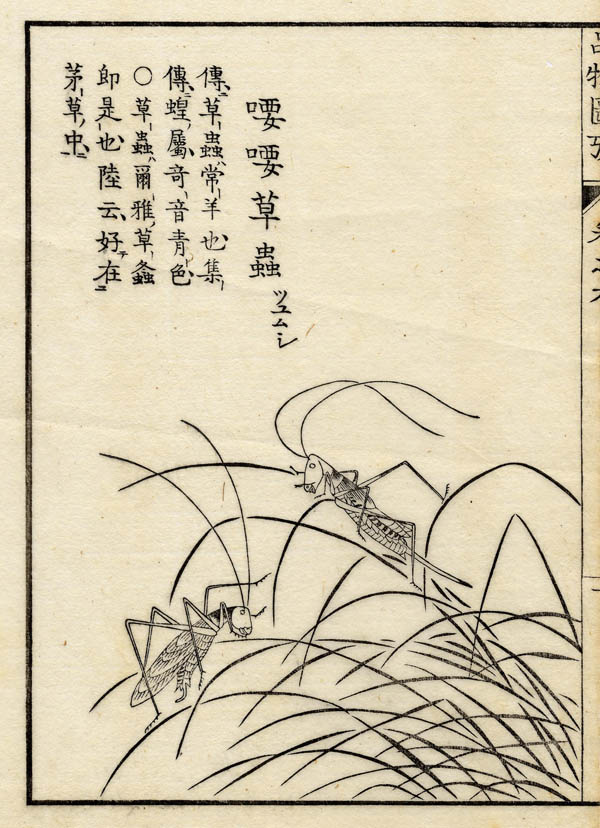 品物圖攷
喓喓草蟲 ツユムシ
傳草蟲常羊也集
傳蝗屬奇音青色
○草蟲爾雅草螽
即是也陸云好在
茅草中